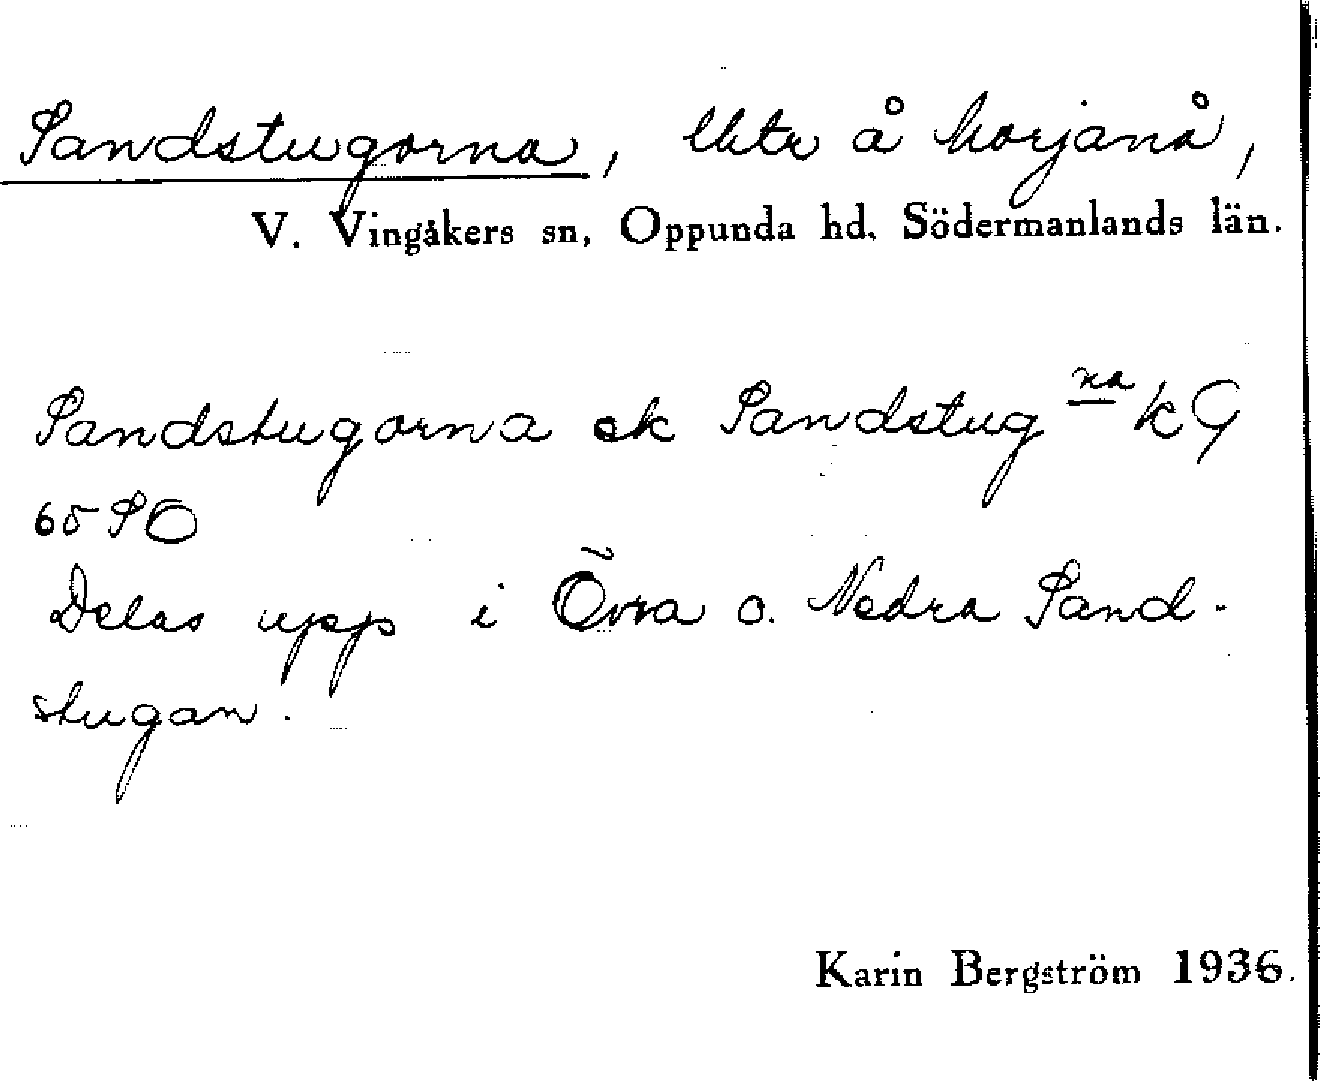 Sandstugorna, lktr å korjanå,
V. Vingåkers sn, Oppunda hd. Södermanlands län.
Sandstugorna ek Sandstug na kG
65 SO
Delas upp i Övra o. Nedra Sand-
stugan.
Karin Bergström 1936.